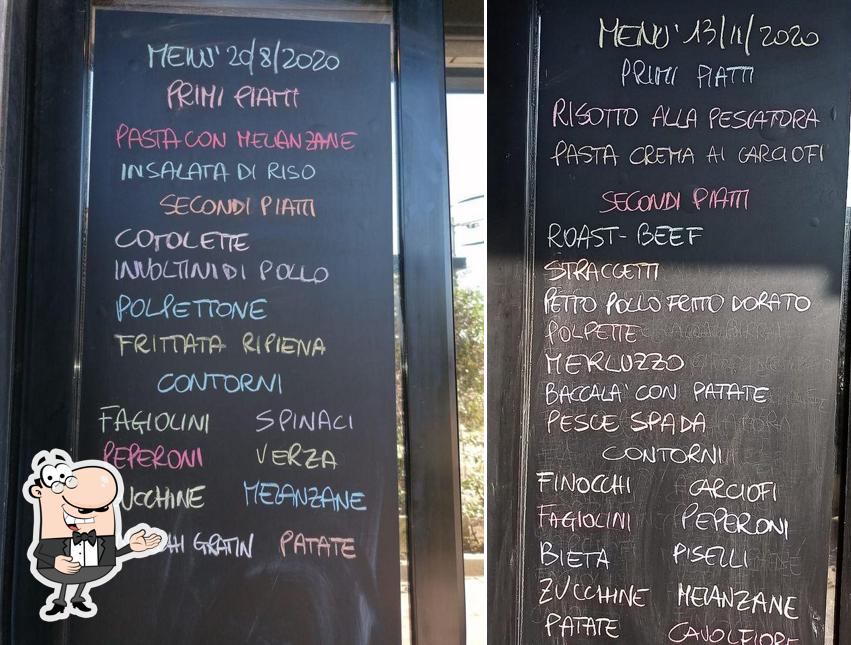 MENU' 20/8/2020
PRIMI PIATTI
PASTA CON MELANZANE
INSALATA DI RISO
SECONDI PIATTI
COTOLETTE
INVOLTINI DI POLLO
POLPETTONE
FRITTATA RIPIENA
CONTORNI
FAGIOLINI SPINACI
PEPERONI VERZA
UCCHINE MELANZANE
CHI GRATIN PATATE
MENU' 13/11/2020
PRIMI PIATTI
RISOTTO ALLA PESCATORA
PASTA CREMA AI CARCIOFI
SECONDI PIATTI
ROAST-BEEF
STRACCETTI
PETTO POLLO FRITTO DORATO
POLPETTE
MERLUZZO
BACCALA' CON PATATE
PESCE SPADA
CONTORNI
FINOCCHI CARCIOFI
FAGIOLINI PEPERONI
BIETA PISELLI
ZUCCHINE MELANZANE
PATATE CAVOLFIORE